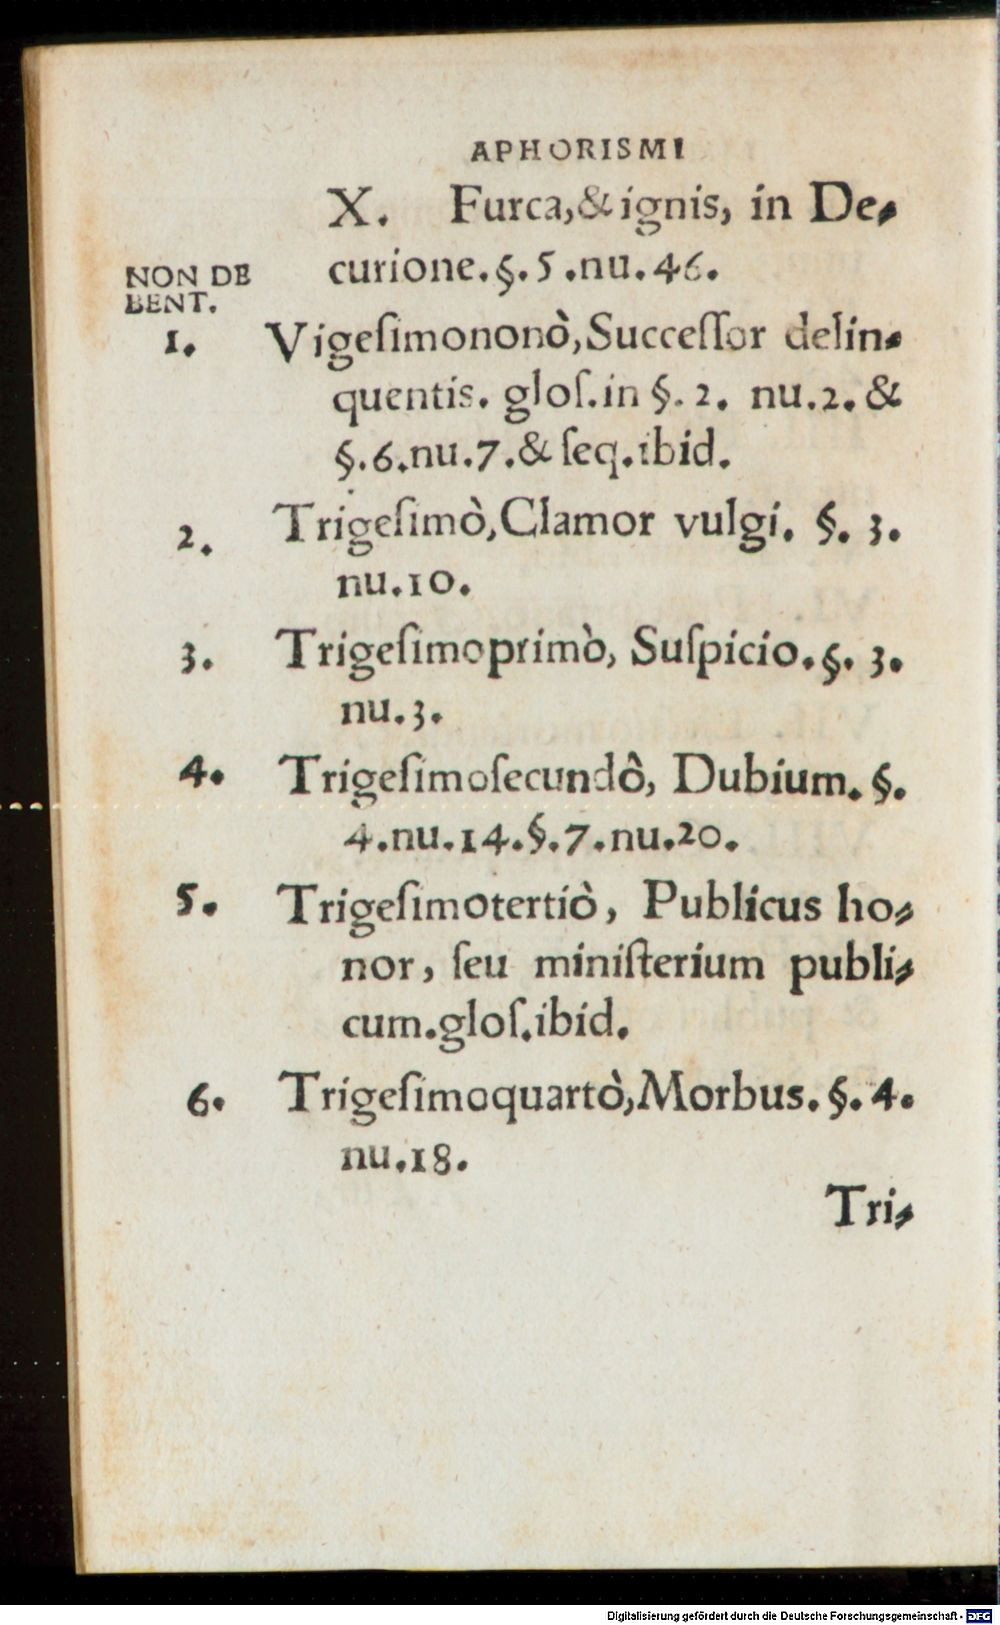 APHORISMI
X. Furca,& ignis, in De⸗
curione.§.5.nu.46.
NON DE
BENT.
1. Vigeſimononò,Succeſſor delin⸗
quentis. gloſ.in §. 2. nu.2. &
§.6.nu.7.& ſeq.ibid.
2. Trigeſimò,Clamor vulgi. §. 3.
nu.10.
3. Trigeſimoprimò, Suſpicio.§. 3.
nu.3.
4. Trigeſimoſecundò, Dubium. §.
4.nu.14.§.7.nu.20.
5. Trigeſimotertiò, Publicus ho⸗
nor, ſeu miniſterium publi⸗
cum.gloſ.ibid.
6. Trigeſimoquartò,Morbus.§.4.
nu.18.
Tri⸗
Digitalisierung gefördert durch die Deutsche Forschungsgemeinschaft - DFG